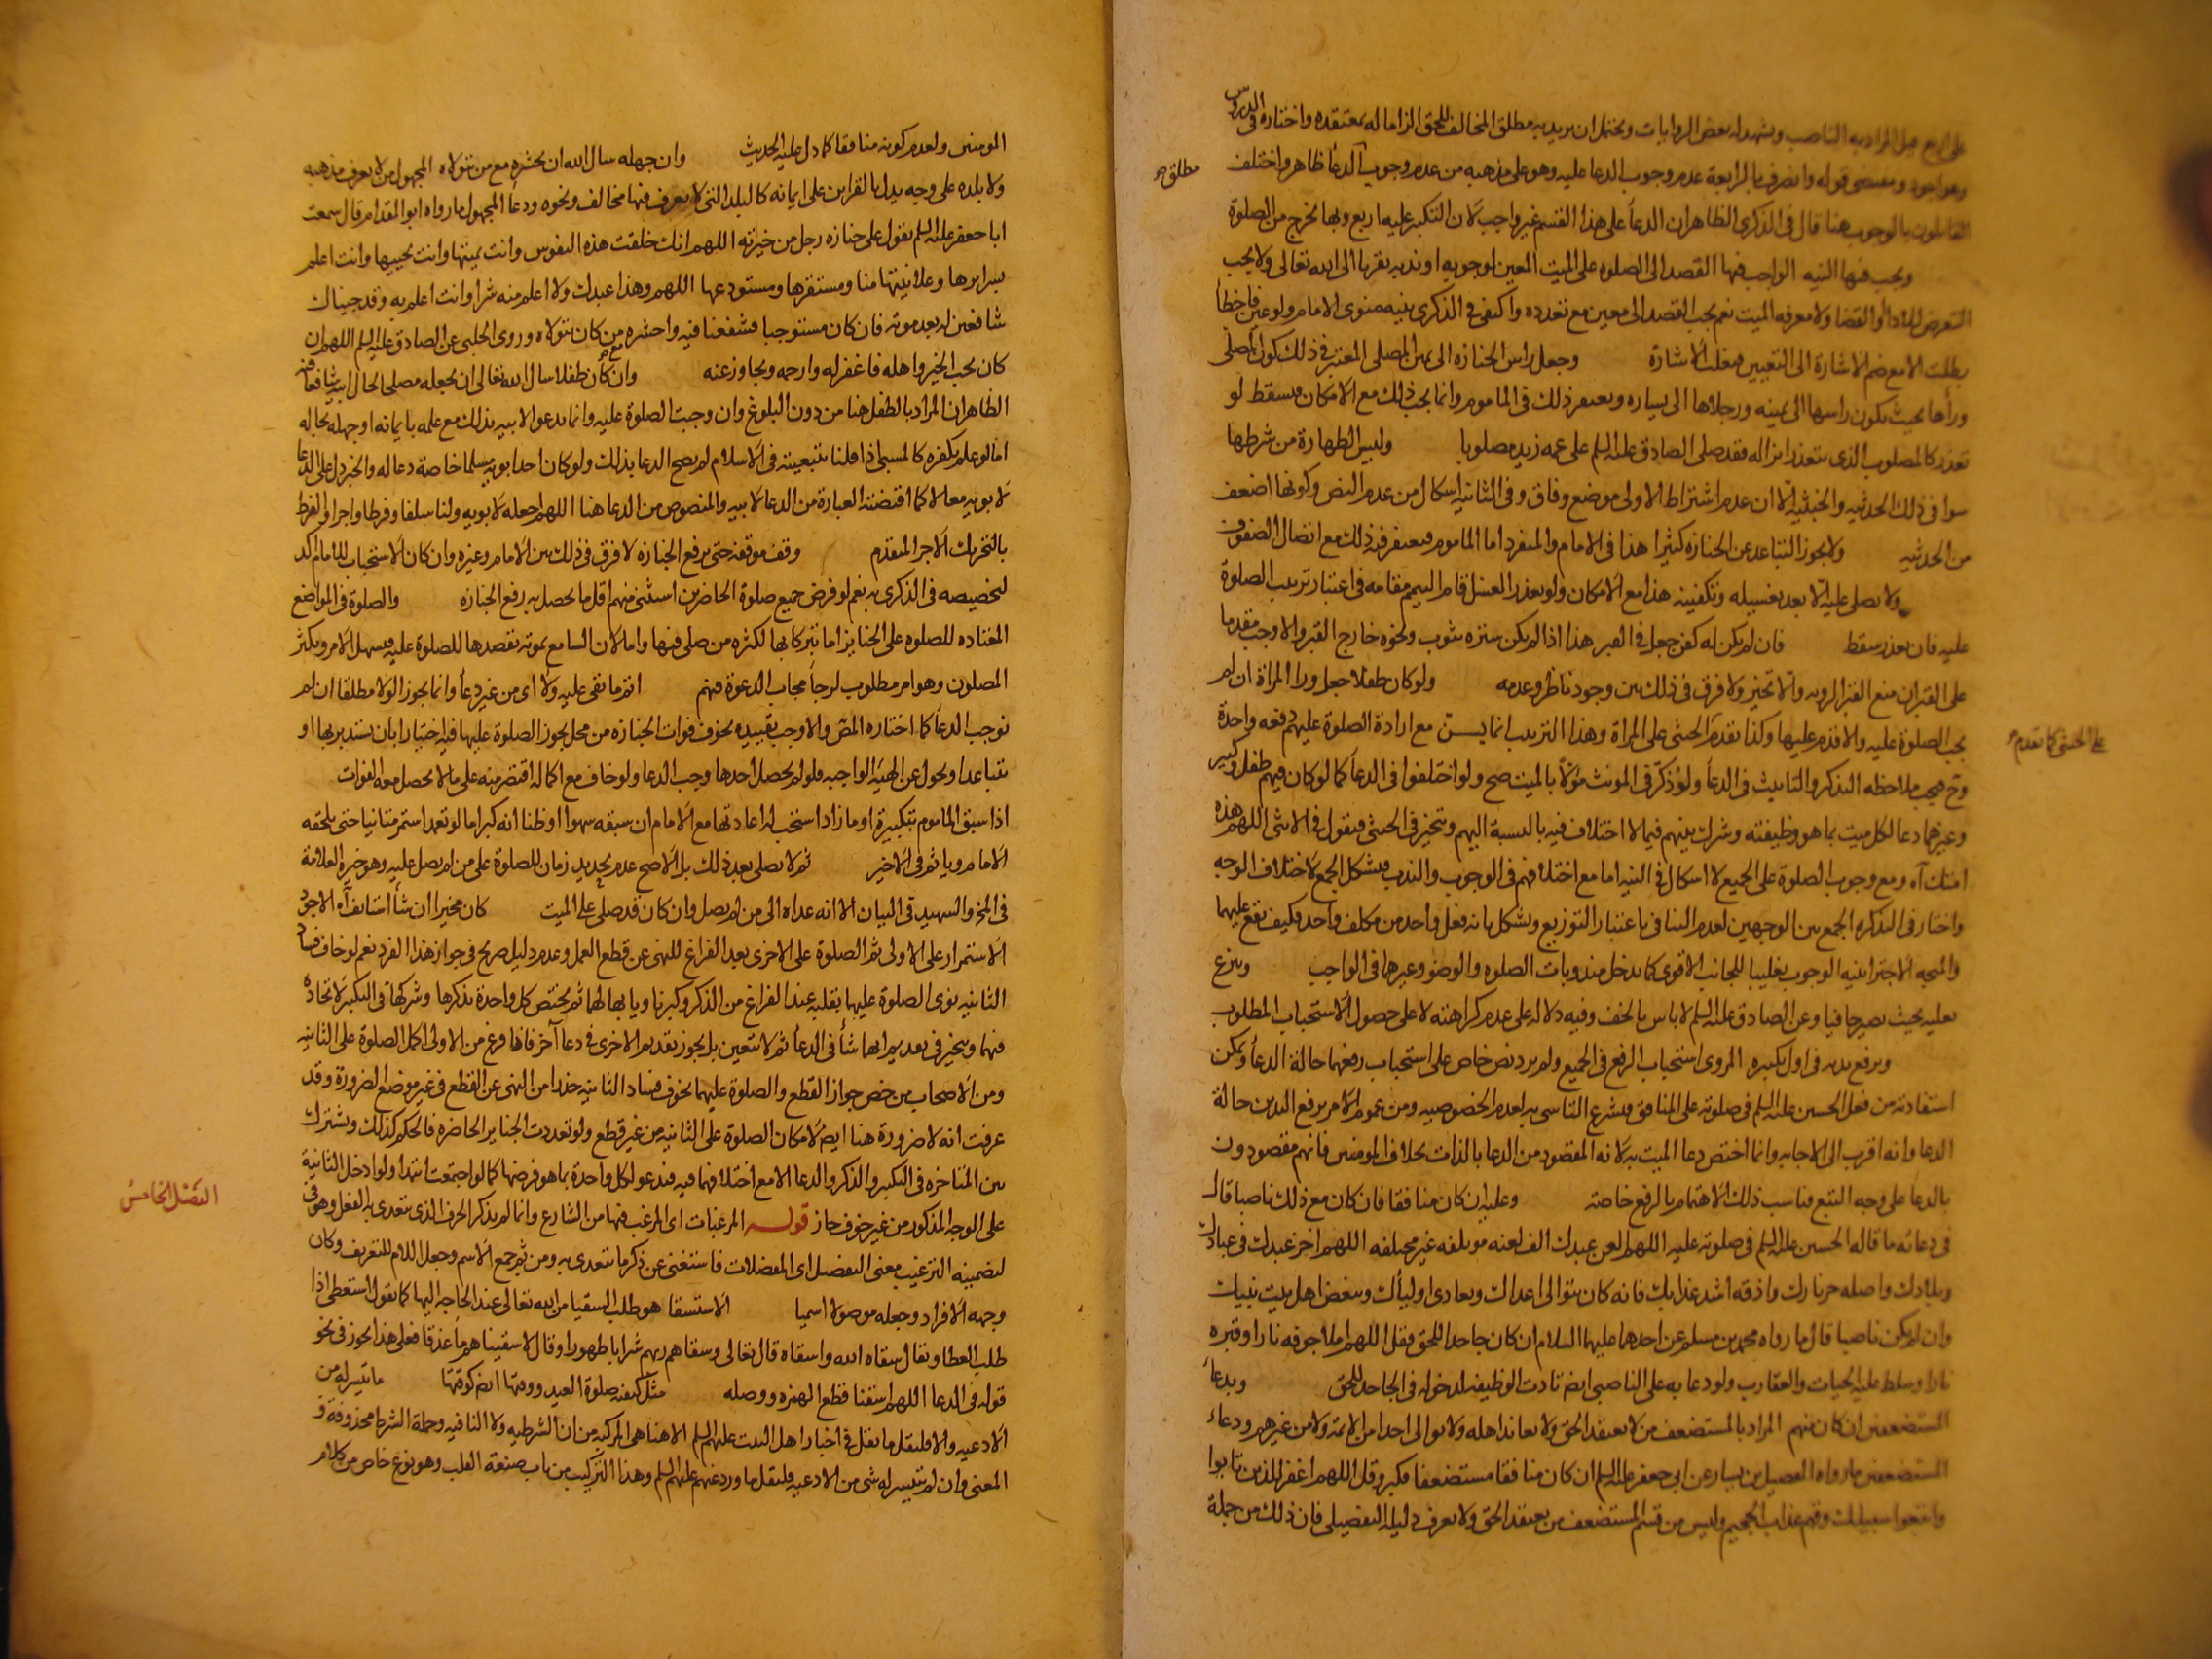 على اربع قيل المراد به الناصب ويشهد له بعض الروايات ويحتمل ان يريد به مطلق المخالف للحق الزاما له بمعتقده واختاره في الدروس
وهو اجود ومقتضى قوله وانصرف بالرابعة عدم وجوب الدعا عليه وهو على مذهبه من عدم وجوب الدعا ظاهر واختلف
مطلق
القائلون بالوجوب هنا قال في الذكرى الظاهر ان الدعا على هذا القسم غير واجب لان التكبير عليه اربع وبها يخرج من الصلوة
ويجب فيها النيه الواجب فيها القصد الى الصلوه على الميت المعين لوجوبه او ندبه تقربا الى الله تعالى ولا يجب
التعرض للاداء والقضا ولا معرفه الميت نعم يجب القصد الى معين مع تعدده واكتفى في الذكرى بنيه منوى الامام ولو عين فاخطا
بطلت الا مع ضم الاشارة الى التعيين فيغلب الاشارة وجعل راس الجنازه الى يمين المصلى المعتبر في ذلك كون المصلى
وراءها بحيث يكون راسها الى يمينه ورجلاها الى يساره ويغتفر ذلك في الماموم وانما يجب ذلك مع الامكان فيسقط لو
تعذر كالمصلوب الذى يتعذر انزاله فقد صلى الصادق عليه السلم على عمه زيد مصلوبا وليس الطهارة من شرطها
سوا في ذلك الحدثيه والخبثيه الا ان عدم اشتراط الاولى موضع وفاق وفي الثانيه اشكال من عدم النص وكونها اضعف
من الحدثيه ولا يجوز التباعد عن الجنازه كثيرا هذا في الامام والمنفرد اما الماموم فيغتفر في ذلك مع اتصال الصفوف
ولا يصلى عليه الا بعد تغسيله وتكفينه هذا مع الامكان ولو تعذر الغسل قام التيمم مقامه في اعتبار ترتيب الصلوة
عليه فان تعذر سقط فان لم يكن له كفن جعل في القبر هذا اذا لم يكن ستره بثوب ونحوه خارج القبر والا وجب مقدما
على القبر ان منع القبر الرويه والا تخير ولا فرق في ذلك بين وجود ناظر وعدمه ولو كان طفلا جعل ورا المراة ان لم
يجب الصلوة عليه والا قدم عليها وكذا تقدم الخنثى على المراة وهذا الترتيب انما يسن مع ارادة الصلوة عليهم دفعه واحدة
على الخنثى كما تقدم
وح فيجب ملاحظه التذكير والتانيث في الدعا ولو ذكر في المونث مؤلا بالميت صح ولو اختلفوا في الدعا كما لو كان فيهم طفل وكبير
وغيرهما دعا لكل ميت بما هو وظيفته وشرك بينهم فيما لا اختلاف فيه بالنسبة اليهم ويتخير في الخنثى فيقول في الانثى اللهم هذه
امتك آه ومع وجوب الصلوة على الجميع لا اشكال في النيه اما مع اختلافهم في الوجوب والندب فيشكل الجمع لاختلاف الوجه
واختار في التذكره الجمع بين الوجهين لعدم التنافي باعتبار التوزيع ويشكل بانه فعل واحد من مكلف واحد فكيف يقع عليهما
والمتجه الاجتزا بنيه الوجوب تغليبا للجانب الاقوى كما يدخل مندوبات الصلوه والوضو وغيرها في الواجب وينزع
نعليه بحيث يصير حافيا وعن الصادق عليه السلم لا باس بالخف وفيه دلاله على عدم كراهته لا على حصول الاستحباب المطلوب
ويرفع يديه في اول تكبيره المروى استحباب الرفع في الجميع ولم يرد نص خاص على استحباب رفعهما حالة الدعا ويمكن
استفادته من فعل الحسين عليه السلم في صلوته على المنافق فيشرع التاسى به لعدم الخصوصيه ومن عموم الامر برفع اليدين حالة
الدعا وانه اقرب الى الاجابه وانما اختص دعا الميت به لانه المقصود من الدعا بالذات بخلاف المومنين فانهم مقصودون
بالدعا على وجه التبع فناسب ذلك الاهتمام بالرفع خاصة وعليه ان كان منافقا فان كان مع ذلك ناصبا قال
في دعائه ما قاله الحسين عليه السلم في صلوته عليه اللهم العن عبدك الف لعنه موتلفه غير مختلفه اللهم اخز عبدك في عبادك
وبلادك واصله حر نارك واذقه اشد عذابك فانه كان يتوالى اعداك ويعادى اولياك ويبغض اهل بيت نبيك
وان لم يكن ناصبا قال ما رواه محمد بن مسلم عن احدهما عليهما السلام ان كان جاحدا للحق فقل اللهم املا جوفه نارا وقبره
نارا وسلط عليه الحيات والعقارب ولو دعا به على الناصبى ايضم تادت الوظيفه لدخوله في الجاحد للحق وبدعا
المستضعفين ان كان منهم المراد بالمستضعف من لا يعتقد الحق ولا يعاند اهله ولا يوالى احدا من الائمة ولا من غيرهم ودعاء
المستضعفين ما رواه الفضيل بن يسار عن ابي جعفر عليه السلم ان كان منافقا مستضعفا فكبر وقل اللهم اغفر للذين تابوا
واتبعوا سبيلك وقهم عذاب الجحيم وليس من قسم المستضعف من يعتقد الحق ولا يعرف دليله التفصيلى فان ذلك من جملة
المومنين ولعدم كونه منافقا كما دل عليه الحديث وان جهله سال الله ان يحشره مع من يتولاه المجهول من لا يعرف مذهبه
ولا بلده على وجه يدل بالقراين على ايمانه كالبلد التى لا يعرف فيها مخالف ونحوه ودعا المجهول ما رواه ابو المقدام قال سمعت
ابا جعفر عليه السلم يقول على جنازه رجل من جيرته اللهم انك خلقت هذه النفوس وانت تميتها وانت تحييها وانت اعلم
بسرايرها وعلانيتها منا ومستقرها ومستودعها اللهم وهذا عبدك ولا اعلم منه شرا وانت اعلم به وقد جيناك
شافعين له بعد موته فان كان مستوجبا فشفعنا فيه واحشره مع من كان يتولاه وروى الحلبى عن الصادق عليه السلم اللهم ان
كان يحب الخير واهله فاغفر له وارحمه وتجاوز عنه وان كان طفلا سال الله تعالى ان يجعله مصلحا لحال ابيه شافعا فيه
الظاهر ان المراد بالطفل هنا من دون البلوغ وان وجبت الصلوة عليه وانما يدعو لابيه بذلك مع علمه بايمانه او جهله بحاله
اما لو علم بكفره كالمسبى اذا قلنا بتبعيته في الاسلام لم يصح الدعا بذلك ولو كان احد ابويه مسلما خاصة دعا له والخبر دل على الدعا
لابويه معا لا كما اقتضته العبارة من الدعا لابيه والمنصوص من الدعا هنا اللهم اجعله لابويه ولنا سلفا وفرطا واجرا والفرط
بالتحريك الاجر المتقدم وقف موقفه حتى يرفع الجنازه لا فرق في ذلك بين الامام وغيره وان كان الاستحباب للامام اكد
لتخصيصه في الذكرى به نعم لو فرض جميع صلوة الحاضرين استثنى منهم اقل ما يحصل به رفع الجنازه والصلوة في المواضع
المعتاده للصلوه على الجنايز اما تبركا بها لكثره من صلى فيها واما لان السامع بموته يقصدها للصلوة عليه فيسهل الامر ويكثر
المصلون وهو امر مطلوب لرجا مجاب الدعوة فيهم اتم ما بقى عليه ولا اى من غير دعا وانما يجوز الولا مطلقا ان لم
نوجب الدعا كما اختاره المص والا وجب تقييده بخوف فوات الجنازه من محل يجوز الصلوة عليها فيه اختيارا بان يستدبر بها او
يتباعد او يحول عن الهيه الواجبه فلو لم يحصل احدها وجب الدعا ولو خاف مع اكماله اقتصر منه على ما لا يحصل معه الفوات
اذا سبق الماموم بتكبيرة او ما زاد استحب له اعادتها مع الامام ان سبقه سهوا او ظنا انه كبر اما لو تعمد استمر متانيا حتى يلحقه
الامام وياثم في الاخير ثم لا يصلى بعد ذلك بل الاصح عدم تحديد زمان للصلوة على من لم يصل عليه وهو خيرة العلامة
في المخ والشهيد في البيان الا انه عداه الى من لم يصل وان كان قد صلى على الميت كان مخيرا ان شا استانف آه الاجود
الاستمرار على الاولى ثم الصلوة على الاخرى بعد الفراغ للنهى عن قطع العمل وعدم دليل صريح في جواز هذا الفرد نعم لو خاف فساد
الثانيه نوى الصلوة عليها بقلبه عند الفراغ من الذكر وكبر ناويا بها لهما ثم يختص كل واحدة بذكرها وشركها في التكبير لاتحاده
فيهما ويتخير في تقديم ايهما شا في الدعا ثم لا يتعين بل يجوز تقديم الاخرى في دعا آخر فاذا فرغ من الاولى اكمل الصلوة على الثانيه
ومن الاصحاب من خص جواز القطع والصلوة عليهما بخوف فساد الثانيه حذرا من النهى عن القطع في غير موضع الضرورة وقد
عرفت انه لا ضرورة هنا ايضم لامكان الصلوة على الثانيه من غير قطع ولو تعددت الجنايز الحاضره فالحكم كذلك ويشترك
بين المتاخره في التكبير والذكر والدعا الا مع اختلافهما فيه فيدعو لكل واحدة بما هو فرضها كما لو اجتمعت ابتدا ولو ادخل الثانية
على الوجه المذكور من غير خوف جاز قوله المرغبات اى المرغب فيها من الشارع وانما لم يذكر الحرف الذى يتعدى به الفعل وهو في
الفصل الخامس
لتضمينه الترغيب معنى التفضيل اى المفضلات فاستغنى عن ذكر ما يتعدى به ومن ثم جمع الاسم وجعل اللام للتعريف وكان
وجهه الافراد وجعله موصولا اسميا الاستسقا هو طلب السقيا من الله تعالى عند الحاجه اليها كما تقول استعطى اذا
طلب العطا ويقال سقاه الله واسقاه قال تعالى وسقاهم ربهم شرابا طهورا وقال لاسقيناهم ماء غدقا فعلى هذا يجوز في نحو
قوله في الدعا اللهم اسقنا قطع الهمزه ووصله مثل كيفيه صلوة العيد ووقتها ايضم كوقتها ما تيسر له من
الادعيه والا فليقل ما نقل في اخبار اهل البيت عليهم السلم الا هنا هى المركبه من ان الشرطيه ولا النافيه وجملة الشرط محذوفة و
المعنى وان لم يتيسر له شى من الادعيه فليقل ما ورد عنهم عليهم السلم وهذا التركيب من باب صنعة القلب وهو نوع خاص من كلام